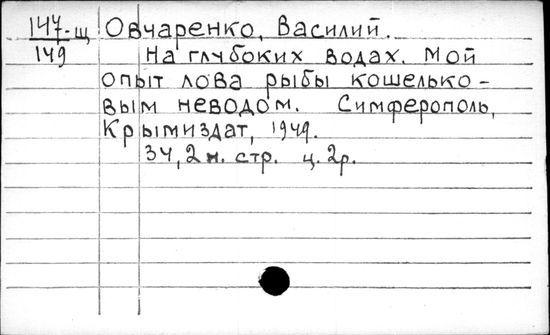 147-щ Овчаренко, Василий.
149 На глубоких водах. Мой
опыт лова рыбы кошелько-
вым неводом. Симферополь,
Крымиздат, 1949.
34, 2 н. стр. ц. 2р.